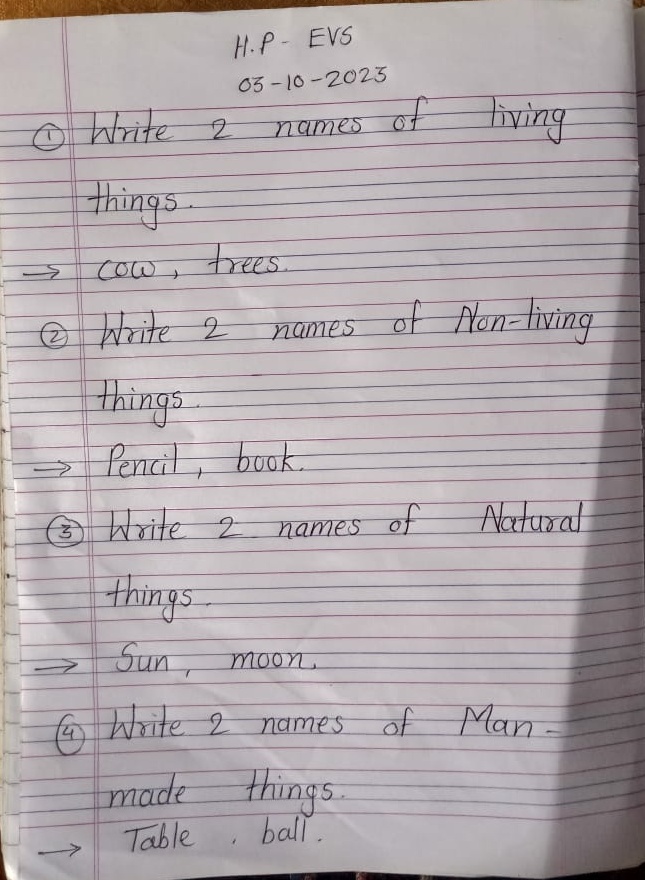 H.P - EVS
03-10-2023
① Write 2 names of living
things.
→ cow, trees.
② Write 2 names of Non-living
things.
→ Pencil, book.
③ Write 2 names of Natural
things.
→ Sun, moon.
④ Write 2 names of Man-
made things.
→ Table, ball.